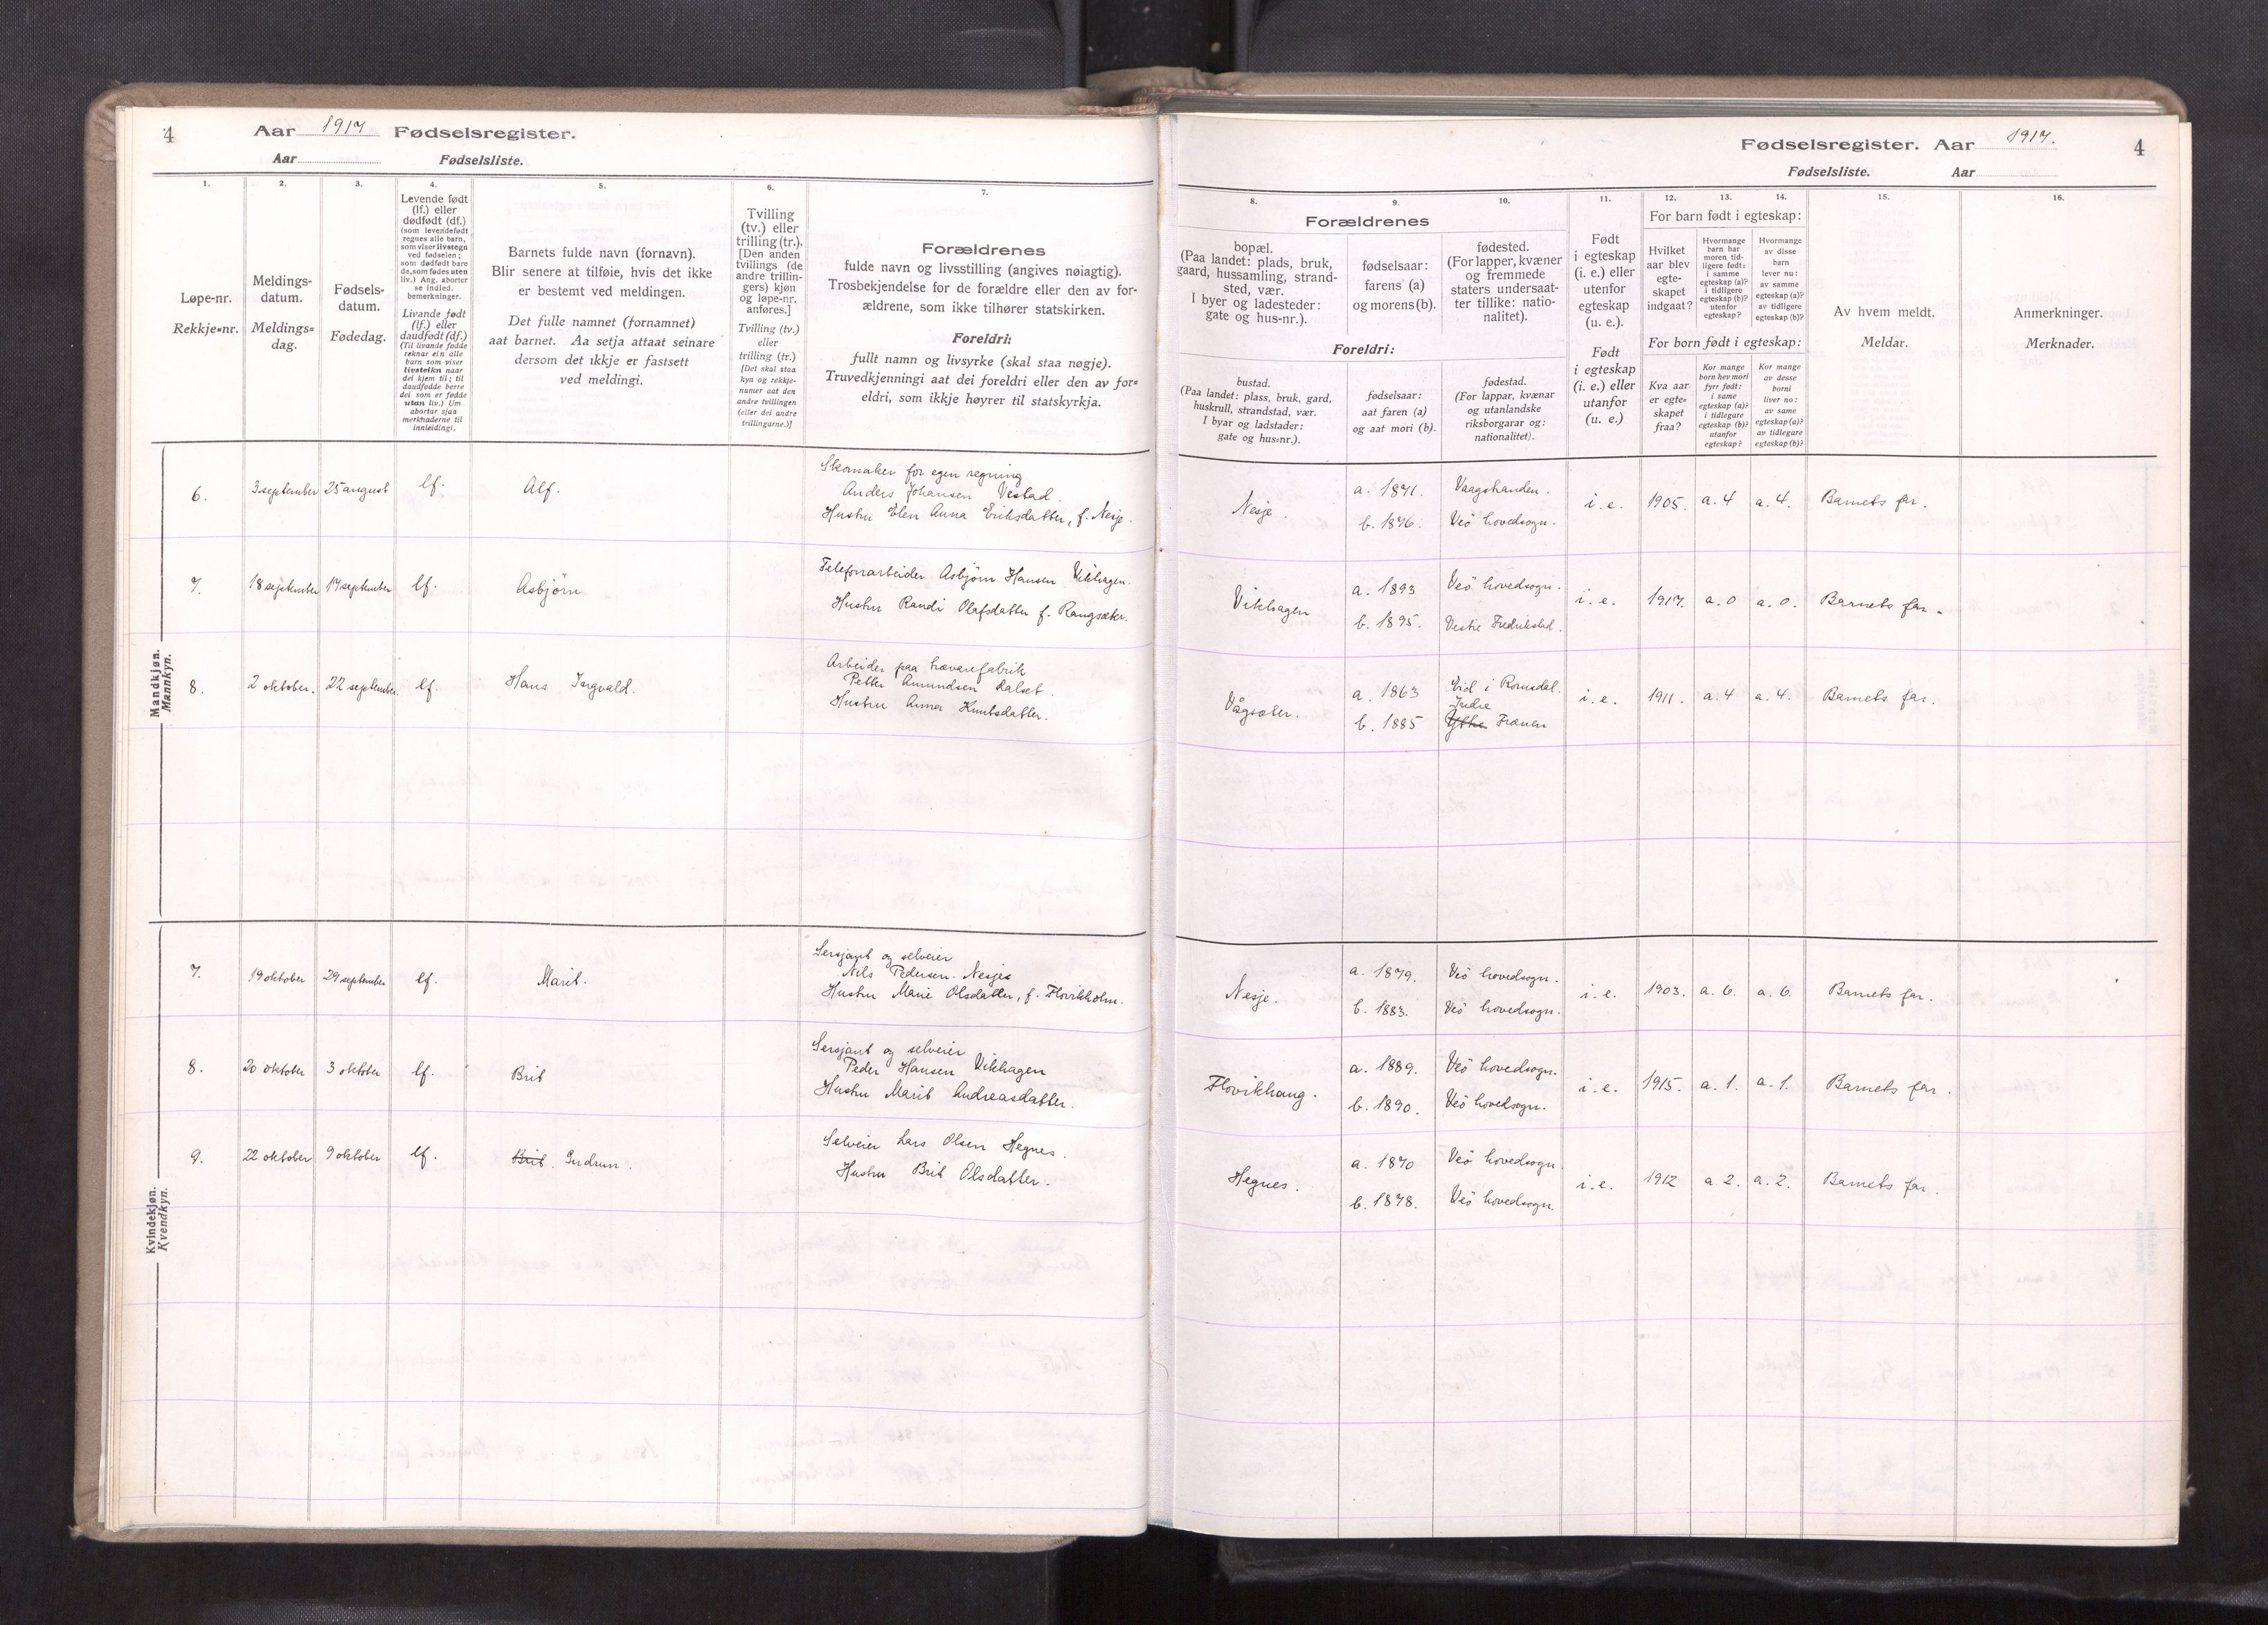 4
Aar 1917 Fødselsregister.
Aar Fødselsliste.
1.
2.
3.
4.
5.
6.
7.
Løpe-nr.
Rekkje-nr.
Meldings-
datum.
Meldings-
dag.
Fødsels-
datum.
Fødedag.
Levende født
(lf.) eller
dødfødt (df.)
(som levendefødt
regnes alle barn,
som viser livstegn
ved fødselen;
som dødfødt bare
de, som fødes uten
liv.) Ang. aborter
se indled.
bemerkninger.
Livande født
(lf.) eller
daudfødt (df.)
(Til livande fødde
reknar ein alle
born som viser
livsteikn naar
dei kjem til; til
daudfødde berre
dei som er fødde
utan liv.) Um
abortar sjaa
merknaderne til
innleidingi.
Barnets fulde navn (fornavn).
Blir senere at tilføie, hvis det ikke
er bestemt ved meldingen.
Det fulle namnet (fornamnet)
aat barnet. Aa setja attaat seinare
dersom det ikkje er fastsett
ved meldingi.
Tvilling
(tv.) eller
trilling (tr.).
[Den anden
tvillings (de
andre trillin-
gers) kjøn
og løpe-nr.
anføres.]
Tvilling (tv.)
eller
trilling (tr.)
[Det skal staa
kyn og rekkje-
numer aat den
andre tvillingen
(eller dei andre
trillingarne.)]
Forældrenes
fulde navn og livsstilling (angives nøiagtig).
Trosbekjendelse for de forældre eller den av for-
ældrene, som ikke tilhører statskirken.
Foreldri:
fullt namn og livsyrke (skal staa nøgje).
Truvedkjenningi aat dei foreldri eller den av for-
eldri, som ikkje høyrer til statskyrkja.
Mandkjøn.
Mannkyn.
6. 3 september 25 august lf. Alf.
Skomaker for egen regning
Anders Johansen Vestad.
Hustru Elen Anna Eriksdatter, f. Nesje.
7. 18 september 17 september lf. Asbjörn
Telefonarbeider Asbjörn Hansen Vikhagen.
Hustru Randi Olafsdatter f. Rangsæter.
8. 2 oktober. 22 september. lf. Hans Ingvald.
Arbeider paa trævarefabrik
Petter Amundsen Dalset.
Hustru Anna Knutsdatter.
Kvindekjøn.
Kvendkyn.
7. 19 oktober 29 september lf. Marit.
Sersjant og selveier
Nils Pedersen Nesje
Hustru Marie Olsdatter, f. Flovikholm.
8. 20 oktober 3 oktober lf. Brit
Sersjant og selveier
Peder Hansen Vikhagen
Hustru Marit Andreasdatter.
9. 22 oktober 9 oktober lf. Brit. Gudrun.
Selveier Lars Olsen Hegnes.
Hustru Brit Olsdatter.
Fødselsregister. Aar 1917.
4
Fødselsliste. Aar
8.
9.
10.
11.
12.
13.
14.
15.
16.
Forældrenes
bopæl.
(Paa landet: plads, bruk,
gaard, hussamling, strand-
sted, vær.
I byer og ladesteder:
gate og hus-nr.).
fødselsaar:
farens (a)
og morens (b).
fødested.
(For lapper, kvæner
og fremmede
staters undersaat-
ter tillike: natio-
nalitet).
Foreldri:
bustad.
(Paa landet: plass, bruk, gard,
huskrull, strandstad, vær.
I byar og ladstader:
gate og hus-nr.).
fødselsaar:
aat faren (a)
og aat mori (b).
fødestad.
(For lappar, kvænar
og utanlandske
riksborgarar og:
nationalitet).
Født
i egteskap
(i. e.) eller
utenfor
egteskap
(u. e.).
Født
i egteskap
(i. e.) eller
utanfor
(u. e.)
For barn født i egteskap:
Hvilket
aar blev
egte-
skapet
indgaat?
Hvormange
barn har
moren tid-
ligere født:
i samme
egteskap (a)?
i tidligere
egteskap (b)?
utenfor
egteskap?
Hvormange
av disse
barn
lever nu:
av samme
egteskap (a)?
av tidligere
egteskap (b)?
For born født i egteskap:
Kva aar
er egte-
skapet
fraa?
Kor mange
born hev mori
fyrr født:
i same
egteskap (a)?
i tidlegare
egteskap (b)?
utanfor
egteskap?
Kor mange
av desse
borni
liver no:
av same
egteskap (a)?
av tidlegare
egteskap (b)?
Av hvem meldt.
Meldar.
Anmerkninger.
Merknader.
Nesje. a. 1871. Vaagstranden. i. e. 1905. a. 4 a. 4. Barnets far.
b. 1876. Veö hovedsogn.
Vikhagen a. 1893 Veö hovedsogn. i. e. 1917. a. 0 a. 0. Barnets far.
b. 1895. Vestre Fredrikstad.
Vågsæter. a. 1863 Eid i Romsdal. i. e. 1911. a. 4 a. 4. Barnets far.
Indre
b. 1885 Ytre Frænen
Nesje. a. 1879. Veö hovedsogn. i. e. 1903. a. 6. a. 6. Barnets far.
b. 1883. Veö hovedsogn.
Flovikhaug. a. 1889. Veö hovedsogn. i. e. 1915. a. 1. a. 1. Barnets far.
b. 1890. Veö hovedsogn.
Hegnes. a. 1870 Veö hovedsogn. i. e. 1912 a 2. a. 2. Barnets far.
b. 1878. Veö hovedsogn.